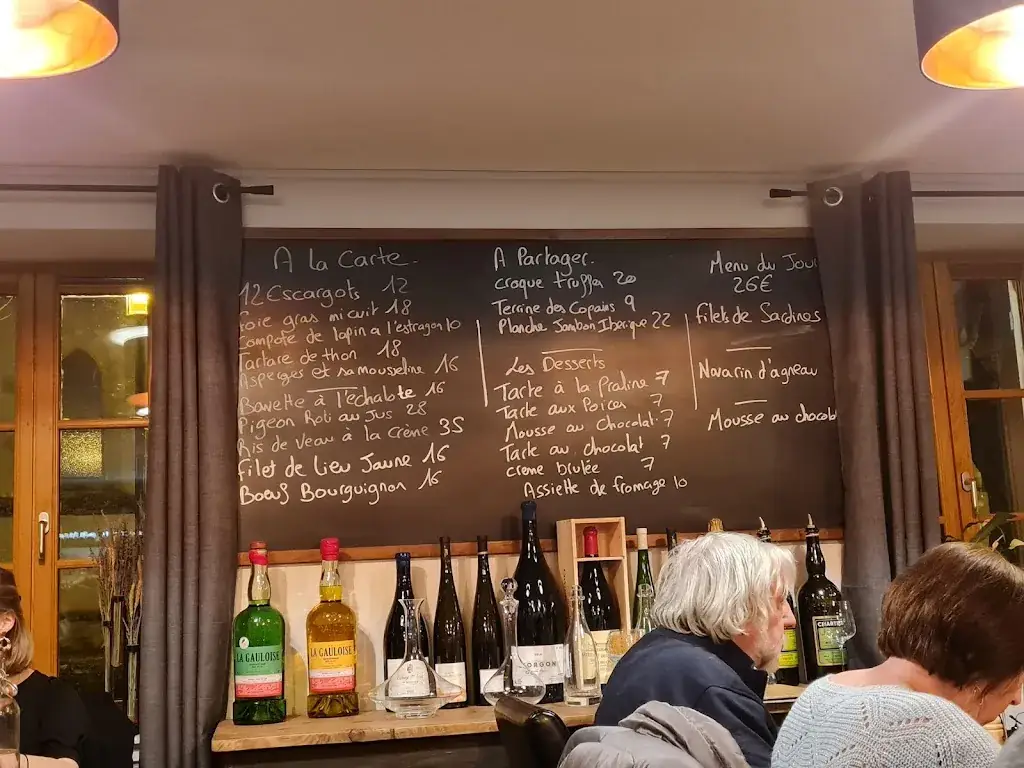 A la Carte.
12 Escargots 12
Foie gras mi cuit 18
Compote de lapin a l'estragon 10
Tartare de thon 18
Asperges et sa mousseline 16
Bavette à l'échalote 16
Pigeon Roti au Jus 28
Ris de veau à la crème 35
Filet de Lieu Jaune 16
Boeuf Bourguignon 16
A Partager.
croque truffe 20
Terrine des Copains 9
Planche Jambon Iberique 22
Les Desserts
Tarte à la Praline 7
Tarte aux Poires 7
Mousse au Chocolat 7
Tarte au chocolat 7
creme brulée 7
Assiette de fromage 10
Menu du Jour
26€
Filets de Sardines
Navarin d'agneau
Mousse au chocol
LA GAULOISE
LA GAULOISE
ORGON
CHARTRE